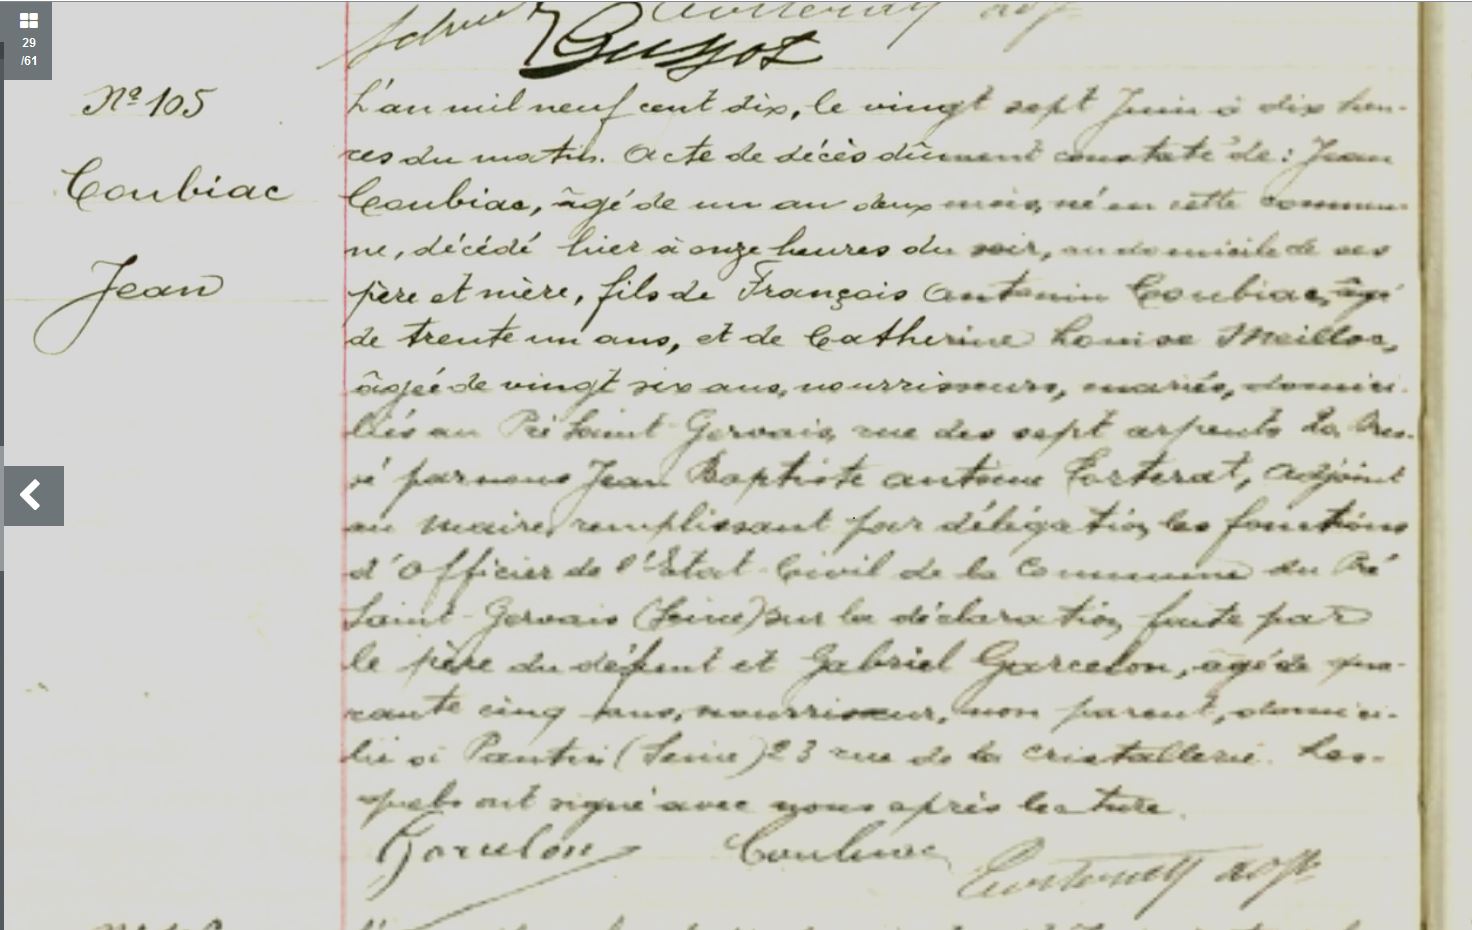 29
/61
Guyot
Nº 105
Coubiac
Jean
L'an mil neuf cent dix, le vingt sept Juin à dix heu-
res du matin. Acte de décès dûment constaté de : Jean
Coubiac, âgé de un an deux mois, né en cette commu-
ne, décédé hier à onze heures du soir, au domicile de ses
père et mère, fils de François Antonin Coubiac, âgé
de trente un ans, et de Catherine Louise Meilloc,
âgée de vingt six ans, nourrisseurs, mariés, domici-
liés au Pré Saint-Gervais, rue des sept arpents Dres-
sé par nous Jean Baptiste Antoine adjoint
au maire, remplissant par délégation les fonctions
d'Officier de l'Etat-Civil de la Commune du Pré
Saint-Gervais (Seine) sur la déclaration faite par
le père du défunt et Gabriel Garcelon, âgé de qua-
rante cinq ans, nourrisseur, non parent, domici-
lié à Pantin (Seine) 23 rue de la cristallerie. Les-
quels ont signé avec nous après lecture.
Garcelon Coubiac